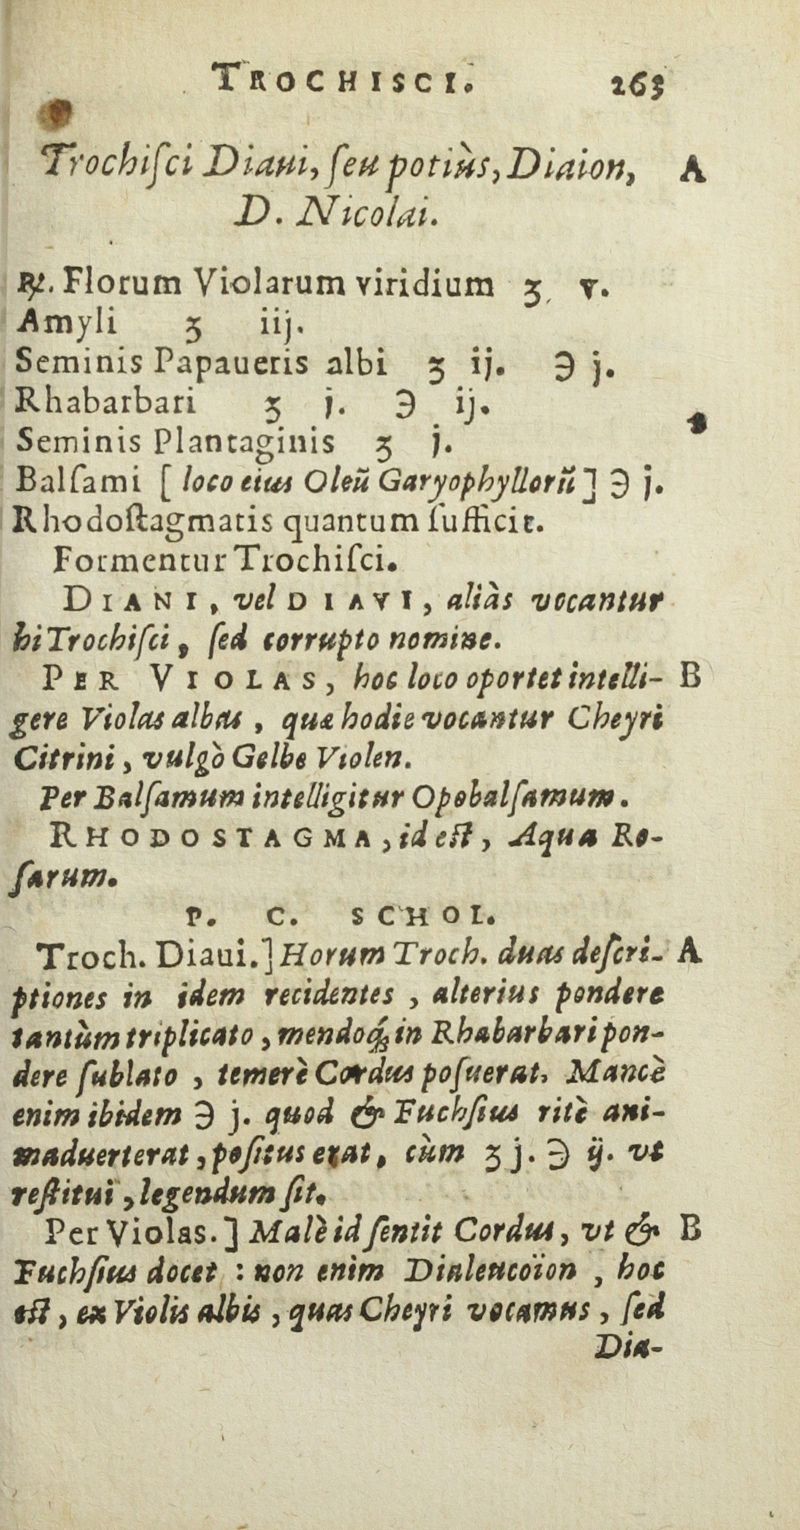 TROCHISCI. 265
Trochiſci Diaui, ſeu potiùs, Diaion, A
D. Nicolai.
℞. Florum Violarum viridium ʒ v.
Amyli ʒ iij.
Seminis Papaueris albi ʒ ij. ℈ j.
Rhabarbari ʒ j. ℈ ij.
Seminis Plantaginis ʒ j.
Balſami [ loco eius Oleũ Garyophyllorũ ] ℈ j.
Rhodoſtagmatis quantum ſufficit.
Formentur Trochiſci.
DIANI, vel DIAVI, aliàs vocantur
hi Trochiſci, ſed corrupto nomine.
PER VIOLAS, hoc loco oportet intelli- B
gere Violas albas, quæ hodie vocantur Cheyri
Citrini, vulgò Gelbe Violen.
Per Balſamum intelligitur Opobalſamum.
RHODOSTAGMA, id eſt, Aqua Ro-
ſarum.
P. C. SCHOL.
Troch. Diaui.] Horum Troch. duas deſcri- A
ptiones in idem recidentes, alterius pondere
tantùm triplicato, mendoq́; in Rhabarbari pon-
dere ſublato, temerè Cordus poſuerat, Mancè
enim ibidem ℈ j. quod & Fuchſius ritè ani-
maduerterat, poſitus erat, cùm ʒ j. ℈ ij. vt
reſtitui, legendum ſit.
Per Violas.] Malè id ſentit Cordus, vt & B
Fuchſius docet : non enim Dialeucoïon, hoc
eſt, ex Violis albis, quas Cheyri vocamus, ſed
Dia-